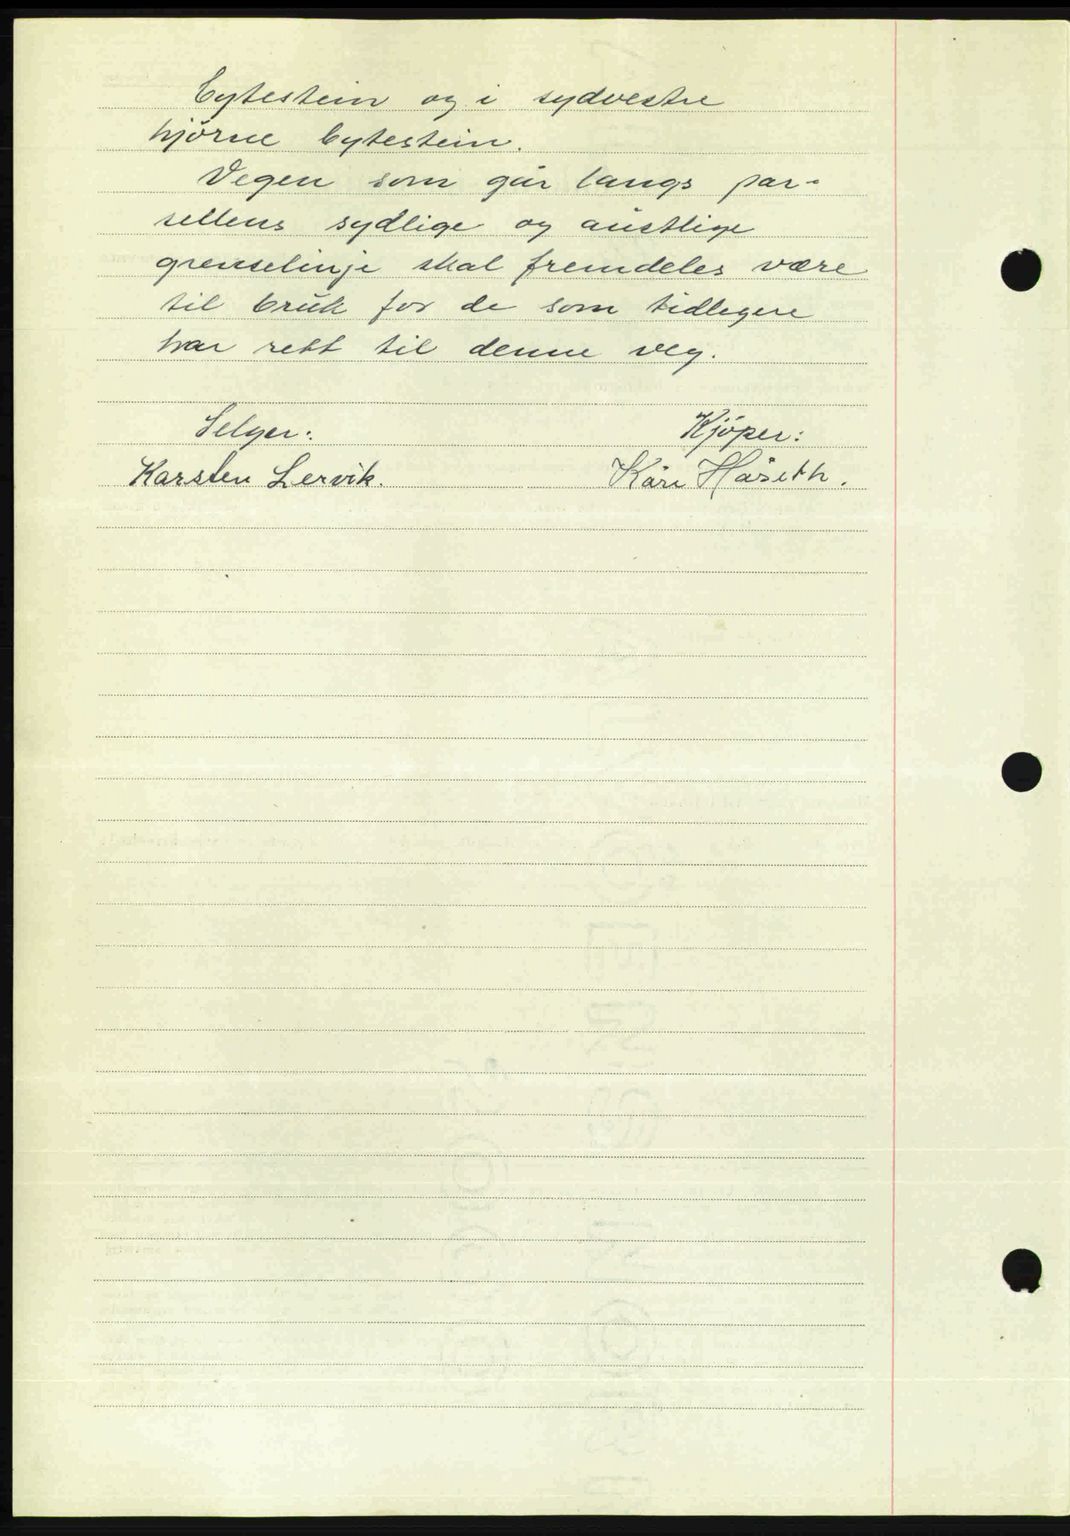 bytestein og i sydvestre
hjørne bytestein.
Vegen som går langs par-
sellens sydlige og austlige
grenselinje skal fremdeles være
til bruk for de som tidlegere
har rett til denne veg.
Selger:
Kjöper:
Karsten Lervik.
Kåre Håseth.